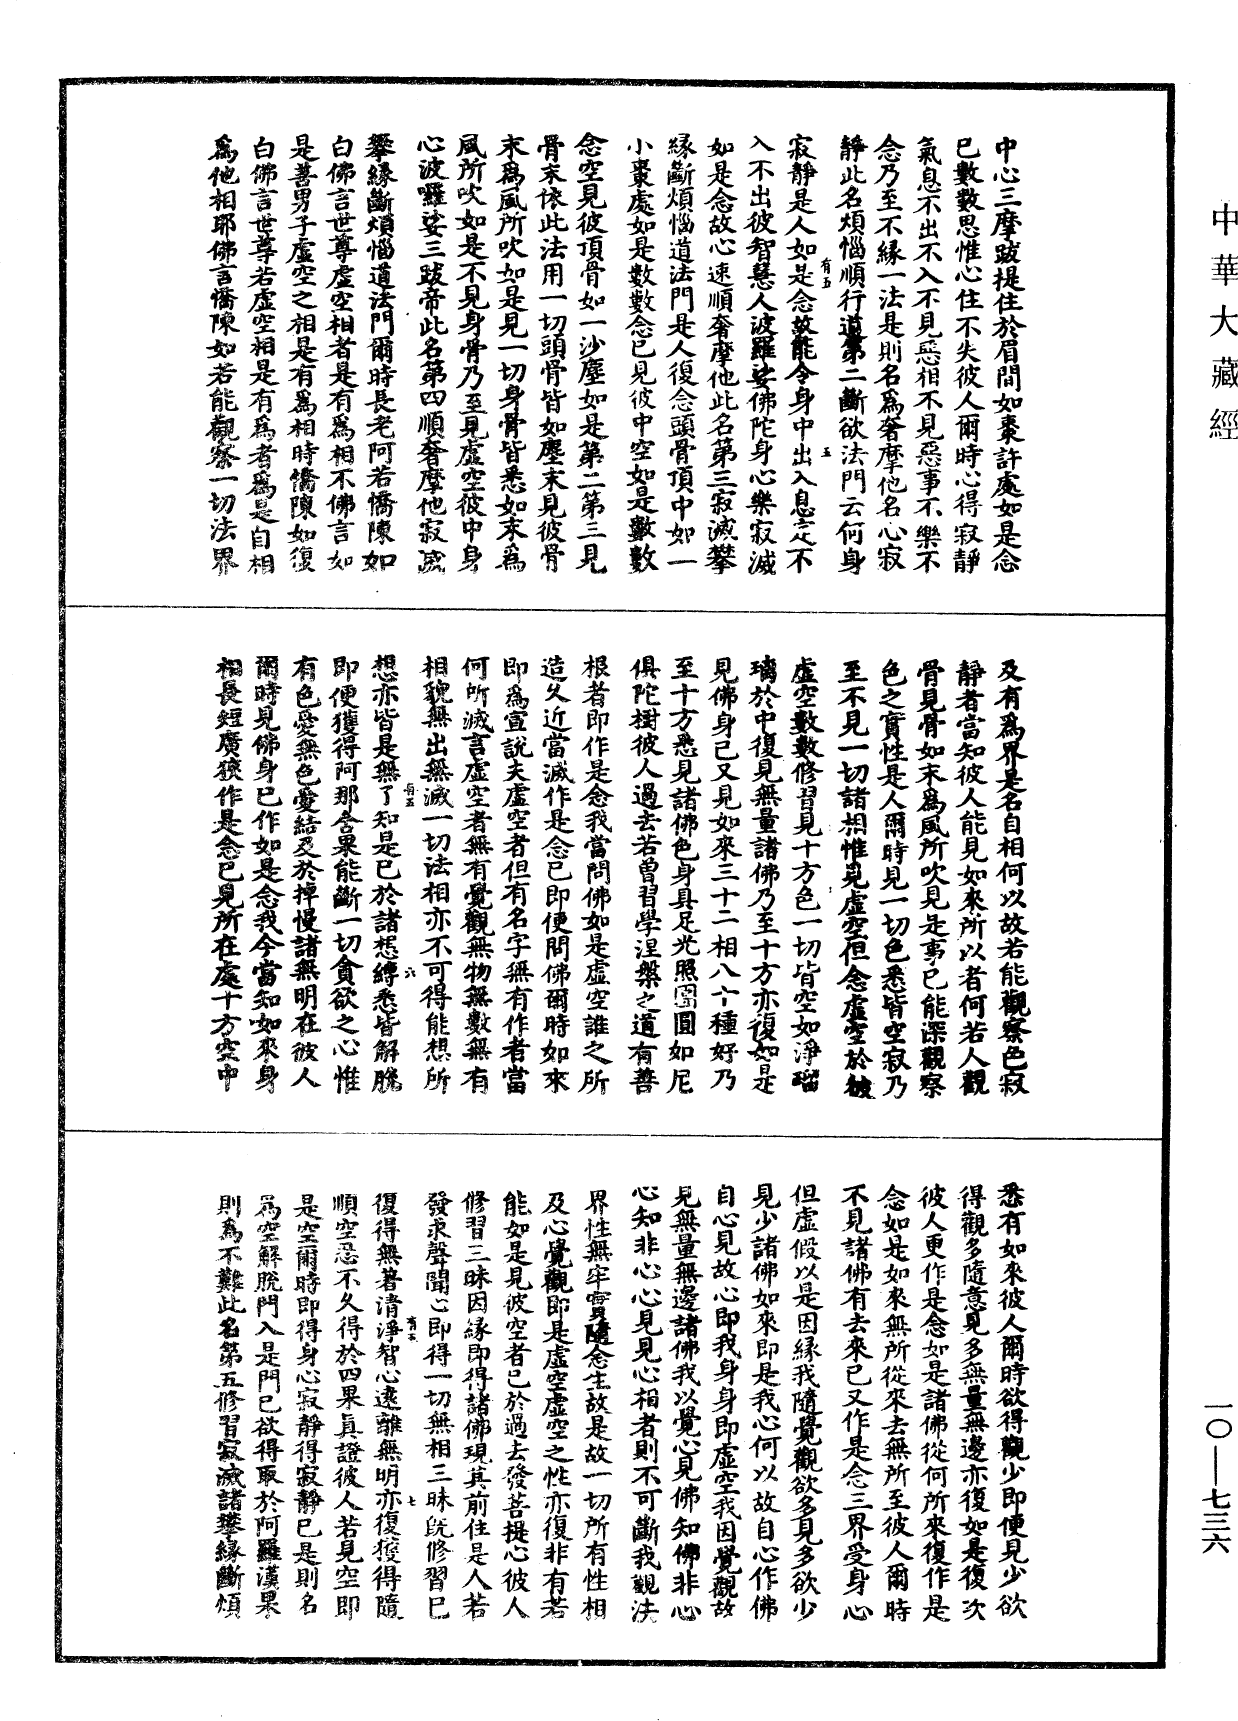 中華大藏經
一〇—七三六
中心三摩跋提住於眉間如棗許處如是念
已數數思惟心住不失彼人爾時心得寂靜
氣息不出不入不見惡相不見惡事不樂不
念乃至不緣一法是則名爲奢摩他名心寂
靜此名煩惱順行道第二斷欲法門云何身
有五
五
寂靜是人如是念故能令身中出入息定不
入不出彼智慧人波羅娑佛陀身心樂寂滅
如是念故心速順奢摩他此名第三寂滅攀
緣斷煩惱道法門是人復念頭骨頂中如一
小棗處如是數數念已見彼中空如是數數
念空見彼頂骨如一沙塵如是第二第三見
骨末依此法用一切頭骨皆如塵末見彼骨
末爲風所吹如是見一切身骨皆悉如末爲
風所吹如是不見身骨乃至見虛空彼中身
心波囉娑三跋帝此名第四順奢摩他寂滅
攀緣斷煩惱道法門爾時長老阿若憍陳如
白佛言世尊虛空相者是有爲相不佛言如
是善男子虛空之相是有爲相時憍陳如復
白佛言世尊若虛空相是有爲者爲是自相
爲他相耶佛言憍陳如若能觀察一切法界
及有爲界是名自相何以故若能觀察色寂
靜者當知彼人能見如來所以者何若人觀
骨見骨如末爲風所吹見是事已能深觀察
色之實性是人爾時見一切色悉皆空寂乃
至不見一切諸相惟見虛空但念虛空於彼
虛空數數修習見十方色一切皆空如淨瑠
璃於中復見無量諸佛乃至十方亦復如是
見佛身已又見如來三十二相八十種好乃
至十方悉見諸佛色身具足光照圓圓如尼
俱陀樹彼人過去若曾習學涅槃之道有善
根者即作是念我當問佛如是虛空誰之所
造久近當滅作是念已即便問佛爾時如來
即爲宣說夫虛空者但有名字無有作者當
何所滅言虛空者無有覺觀無物無數無有
相貌無出無滅一切法相亦不可得能想所
有五
六
想亦皆是無了知是已於諸想縛悉皆解脫
即便獲得阿那含果能斷一切貪欲之心惟
有色愛無色愛結及於掉慢諸無明在彼人
爾時見佛身已作如是念我今當知如來身
相長短廣狹作是念已見所在處十方空中
悉有如來彼人爾時欲得觀少即便見少欲
得觀多隨意見多無量無邊亦復如是復次
彼人更作是念如是諸佛從何所來復作是
念如是如來無所從來去無所至彼人爾時
不見諸佛有去來已又作是念三界受身心
但虛假以是因緣我隨覺觀欲多見多欲少
見少諸佛如來即是我心何以故自心作佛
自心見故心即我身身即虛空我因覺觀故
見無量無邊諸佛我以覺心見佛知佛非心
心知非心心見見心相者則不可斷我觀法
界性無牢實隨念生故是故一切所有性相
及心覺觀即是虛空虛空之性亦復非有若
能如是見彼空者已於過去發菩提心彼人
修習三昧因緣即得諸佛現其前住是人若
發求聲聞心即得一切無相三昧既修習已
有五
七
復得無著清淨智心遠離無明亦復獲得隨
順空忍不久得於四果真證彼人若見空即
是空爾時即得身心寂靜得寂靜已是則名
爲空解脫門入是門已欲得取於阿羅漢果
則爲不難此名第五修習寂滅諸攀緣斷煩